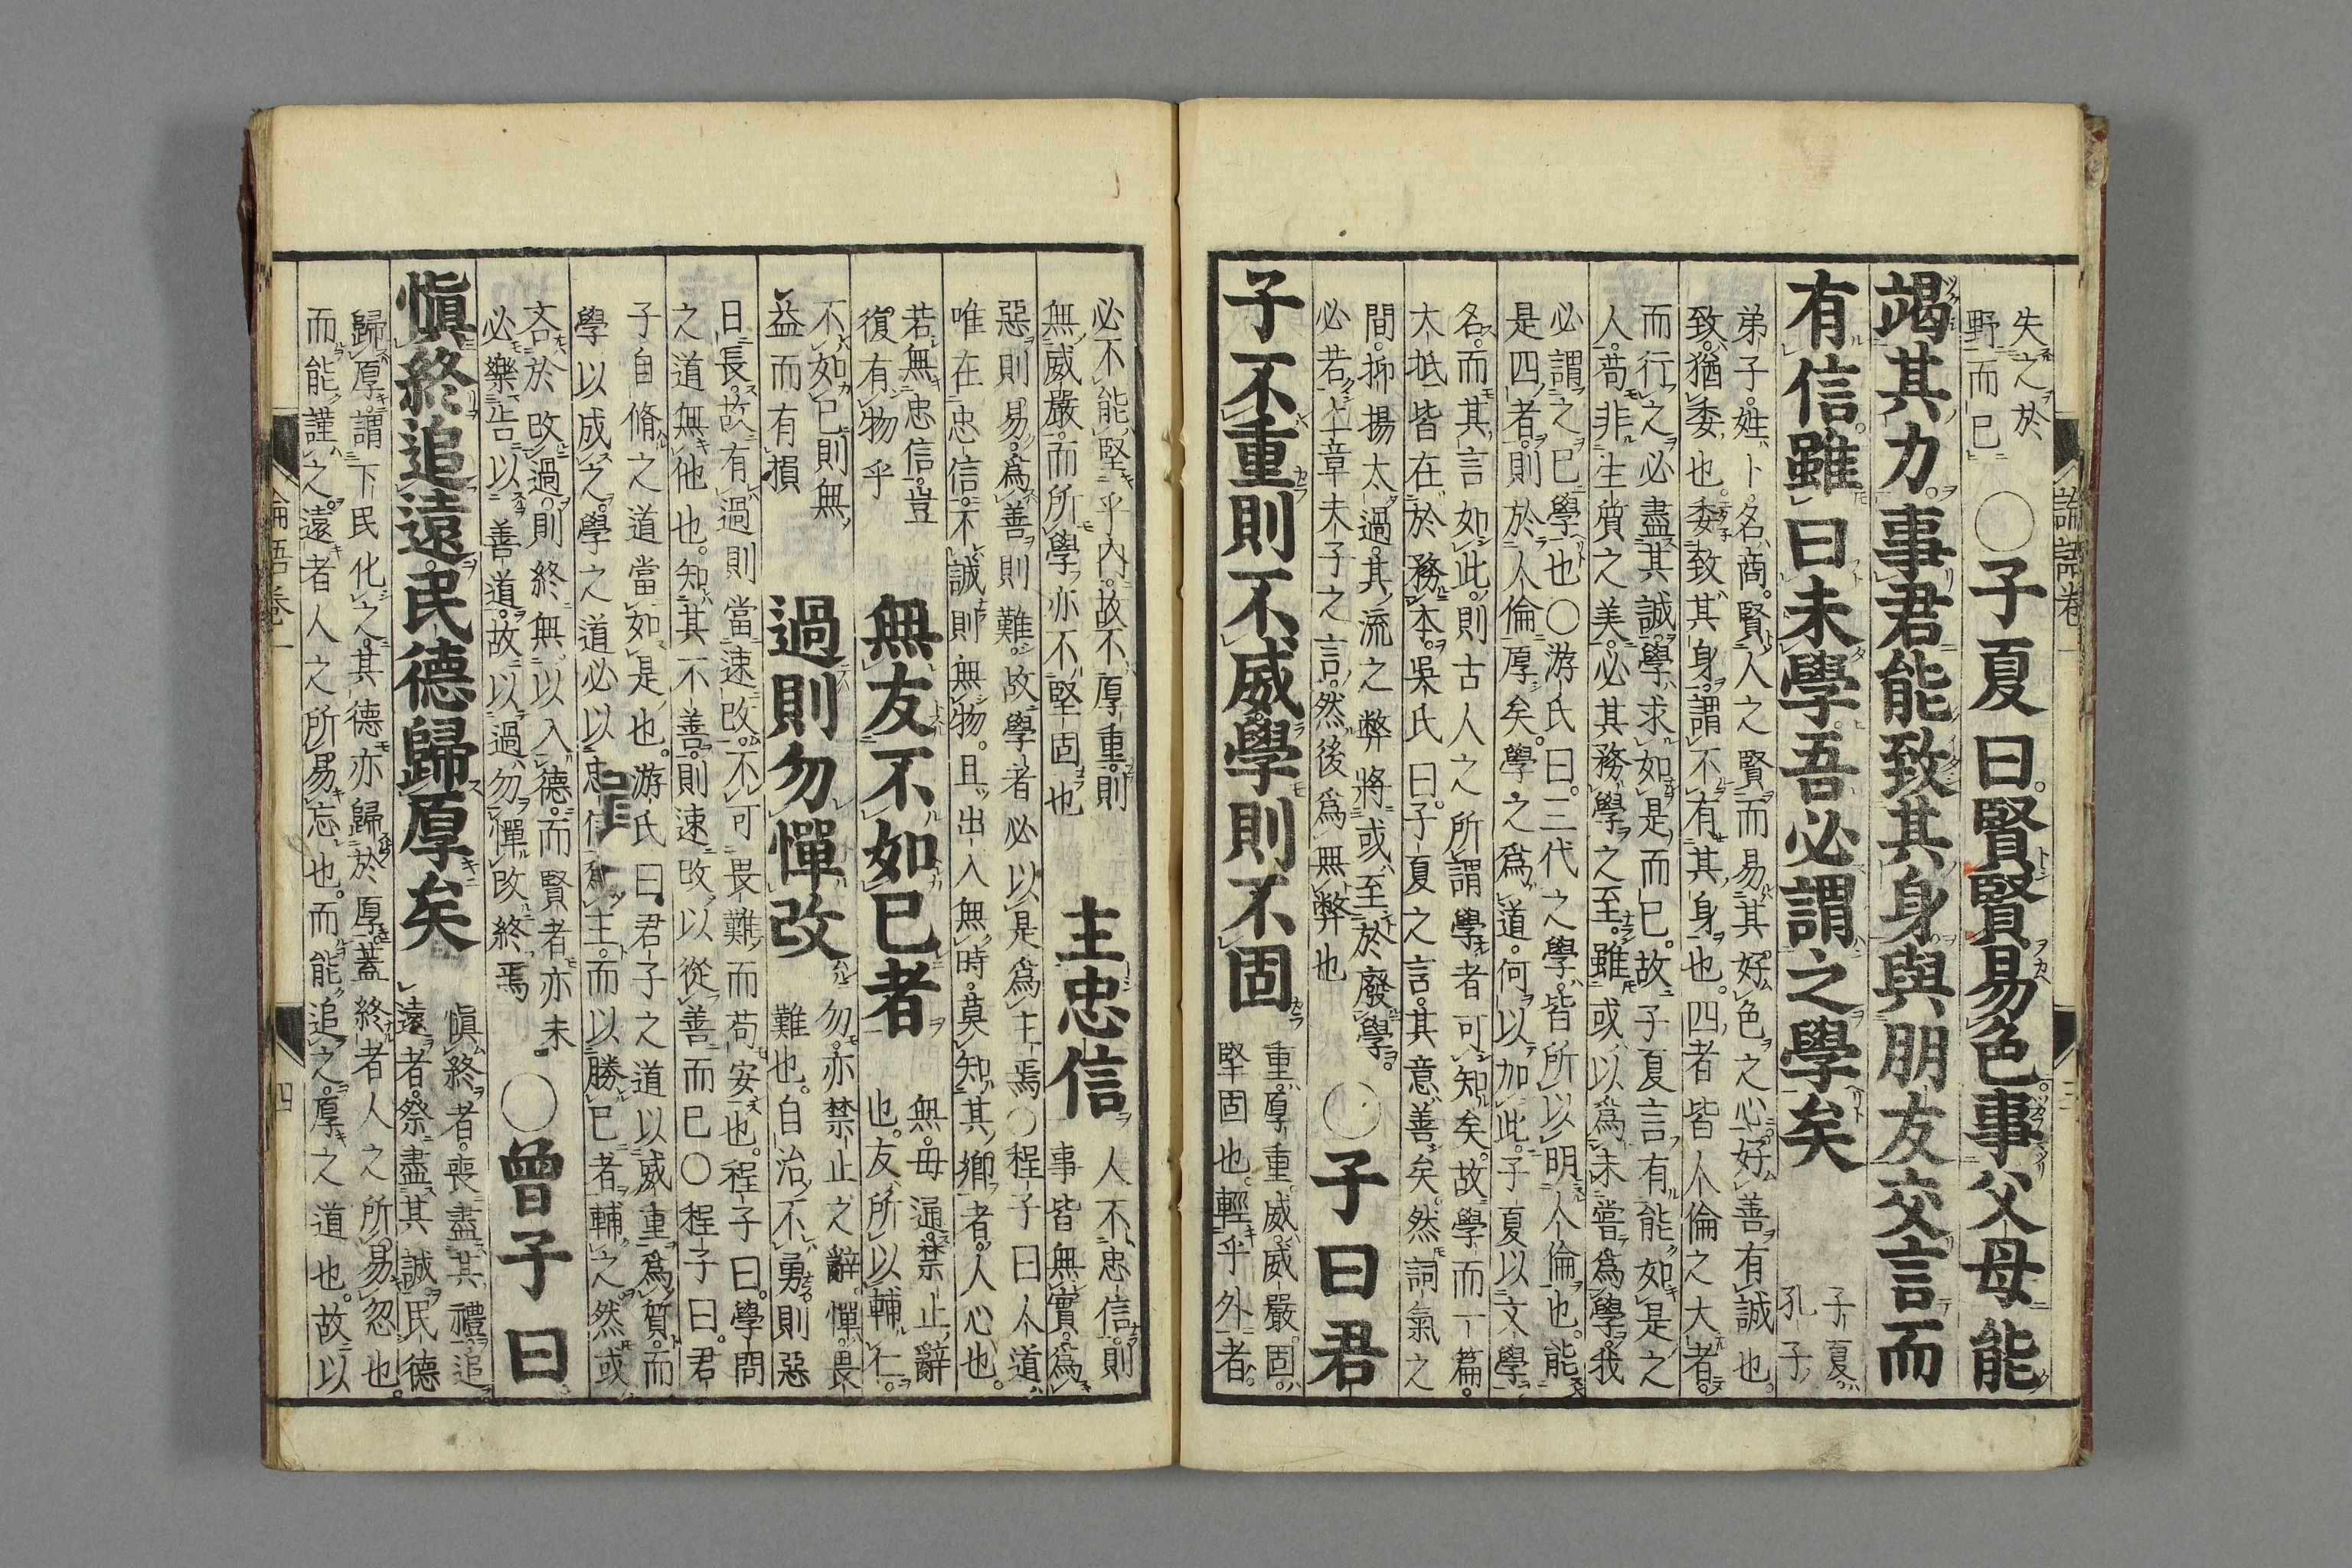 論語卷一
三
失之於
野而已
○子夏曰賢賢易色事父母能
竭其力事君能致其身與朋友交言而
有信雖曰未學吾必謂之學矣
子夏
孔子
弟子姓卜名商賢人之賢而易其好色之心好善有誠也
致猶委也委致其身謂不有其身也四者皆人倫之大者
而行之必盡其誠學求如是而已故子夏言有能如是之
人苟非生質之美必其務學之至雖或以爲未嘗爲學我
必謂之已學也○游氏曰三代之學皆所以明人倫也能
是四者則於人倫厚矣學之爲道何以加此子夏以文學
名而其言如此則古人之所謂學者可知矣故學而一篇
大抵皆在於務本吳氏曰子夏之言其意善矣然詞氣之
間抑揚太過其流之弊將或至於廢學
必若上章夫子之言然後爲無弊也
○子曰君
子不重則不威學則不固
重厚重威威嚴固
堅固也輕乎外者
必不能堅乎內故不厚重則
無威嚴而所學亦不堅固也
主忠信
人不忠信則
事皆無實爲
惡則易爲善則難故學者必以是爲主焉○程子曰人道
唯在忠信不誠則無物且出入無時莫知其鄉者人心也
若無忠信豈
復有物乎
無友不如已者
無毋通禁止辭
也友所以輔仁
不如已則無
益而有損
過則勿憚改
勿亦禁止之辭憚畏
難也自治不勇則惡
日長故有過則當速改不可畏難而苟安也程子曰學問
之道無他也知其不善則速改以從善而已○程子曰君
子自脩之道當如是也游氏曰君子之道以威重爲質而
學以成之學之道必以忠信爲主而以勝已者輔之然或
吝於改過則終無以入德而賢者亦未
必樂告以善道故以過勿憚改終焉
○曾子曰
愼終追遠民德歸厚矣
愼終者喪盡其禮追
遠者祭盡其誠民德
歸厚謂下民化之其德亦歸於厚蓋終者人之所易忽也
而能謹之遠者人之所易忘也而能追之厚之道也故以
論語卷一
四